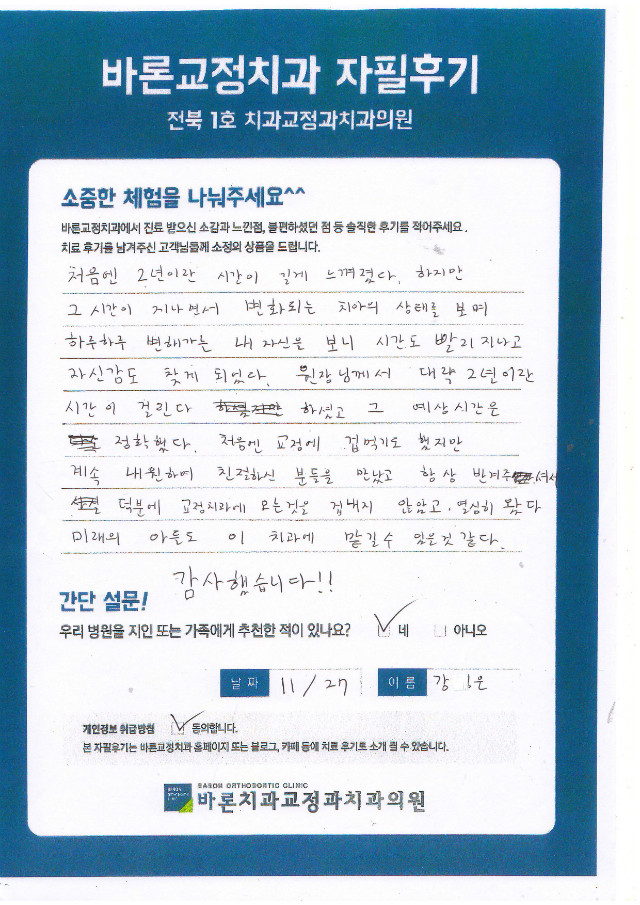 바론교정치과 자필후기
전북 1호 치과교정과치과의원
소중한 체험을 나눠주세요^^
바론교정치과에서 진료 받으신 소감과 느낀점, 불편하셨던 점 등 솔직한 후기를 적어주세요.
치료 후기를 남겨주신 고객님들께 소정의 상품을 드립니다.
처음엔 2년이란 시간이 길게 느껴졌다. 하지만
그 시간이 지나면서 변화되는 치아의 상태를 보며
하루하루 변해가는 내 자신을 보니 시간도 빨리 지나고
자신감도 찾게 되었다. 원장님께서 대략 2년이란
시간이 걸린다 하셨고 그 예상시간은
정확했다. 처음엔 교정에 겁먹기도 했지만
계속 내원하며 친절하신 분들을 만났고 항상 반겨주셔서
덕분에 교정치과에 오는것은 겁내지 않았고. 열심히 왔다
미래의 아들도 이 치과에 맡길수 있을것 같다.
감사했습니다!!
간단 설문!
우리 병원을 지인 또는 가족에게 추천한 적이 있나요? 네 아니오
날짜 11/27 이름 강 은
개인정보 취급방침 동의합니다.
본 자필후기는 바론교정치과 홈페이지 또는 블로그, 카페 등에 치료 후기로 소개 될 수 있습니다.
BARON ORTHODONTIC CLINIC
바론치과교정과치과의원